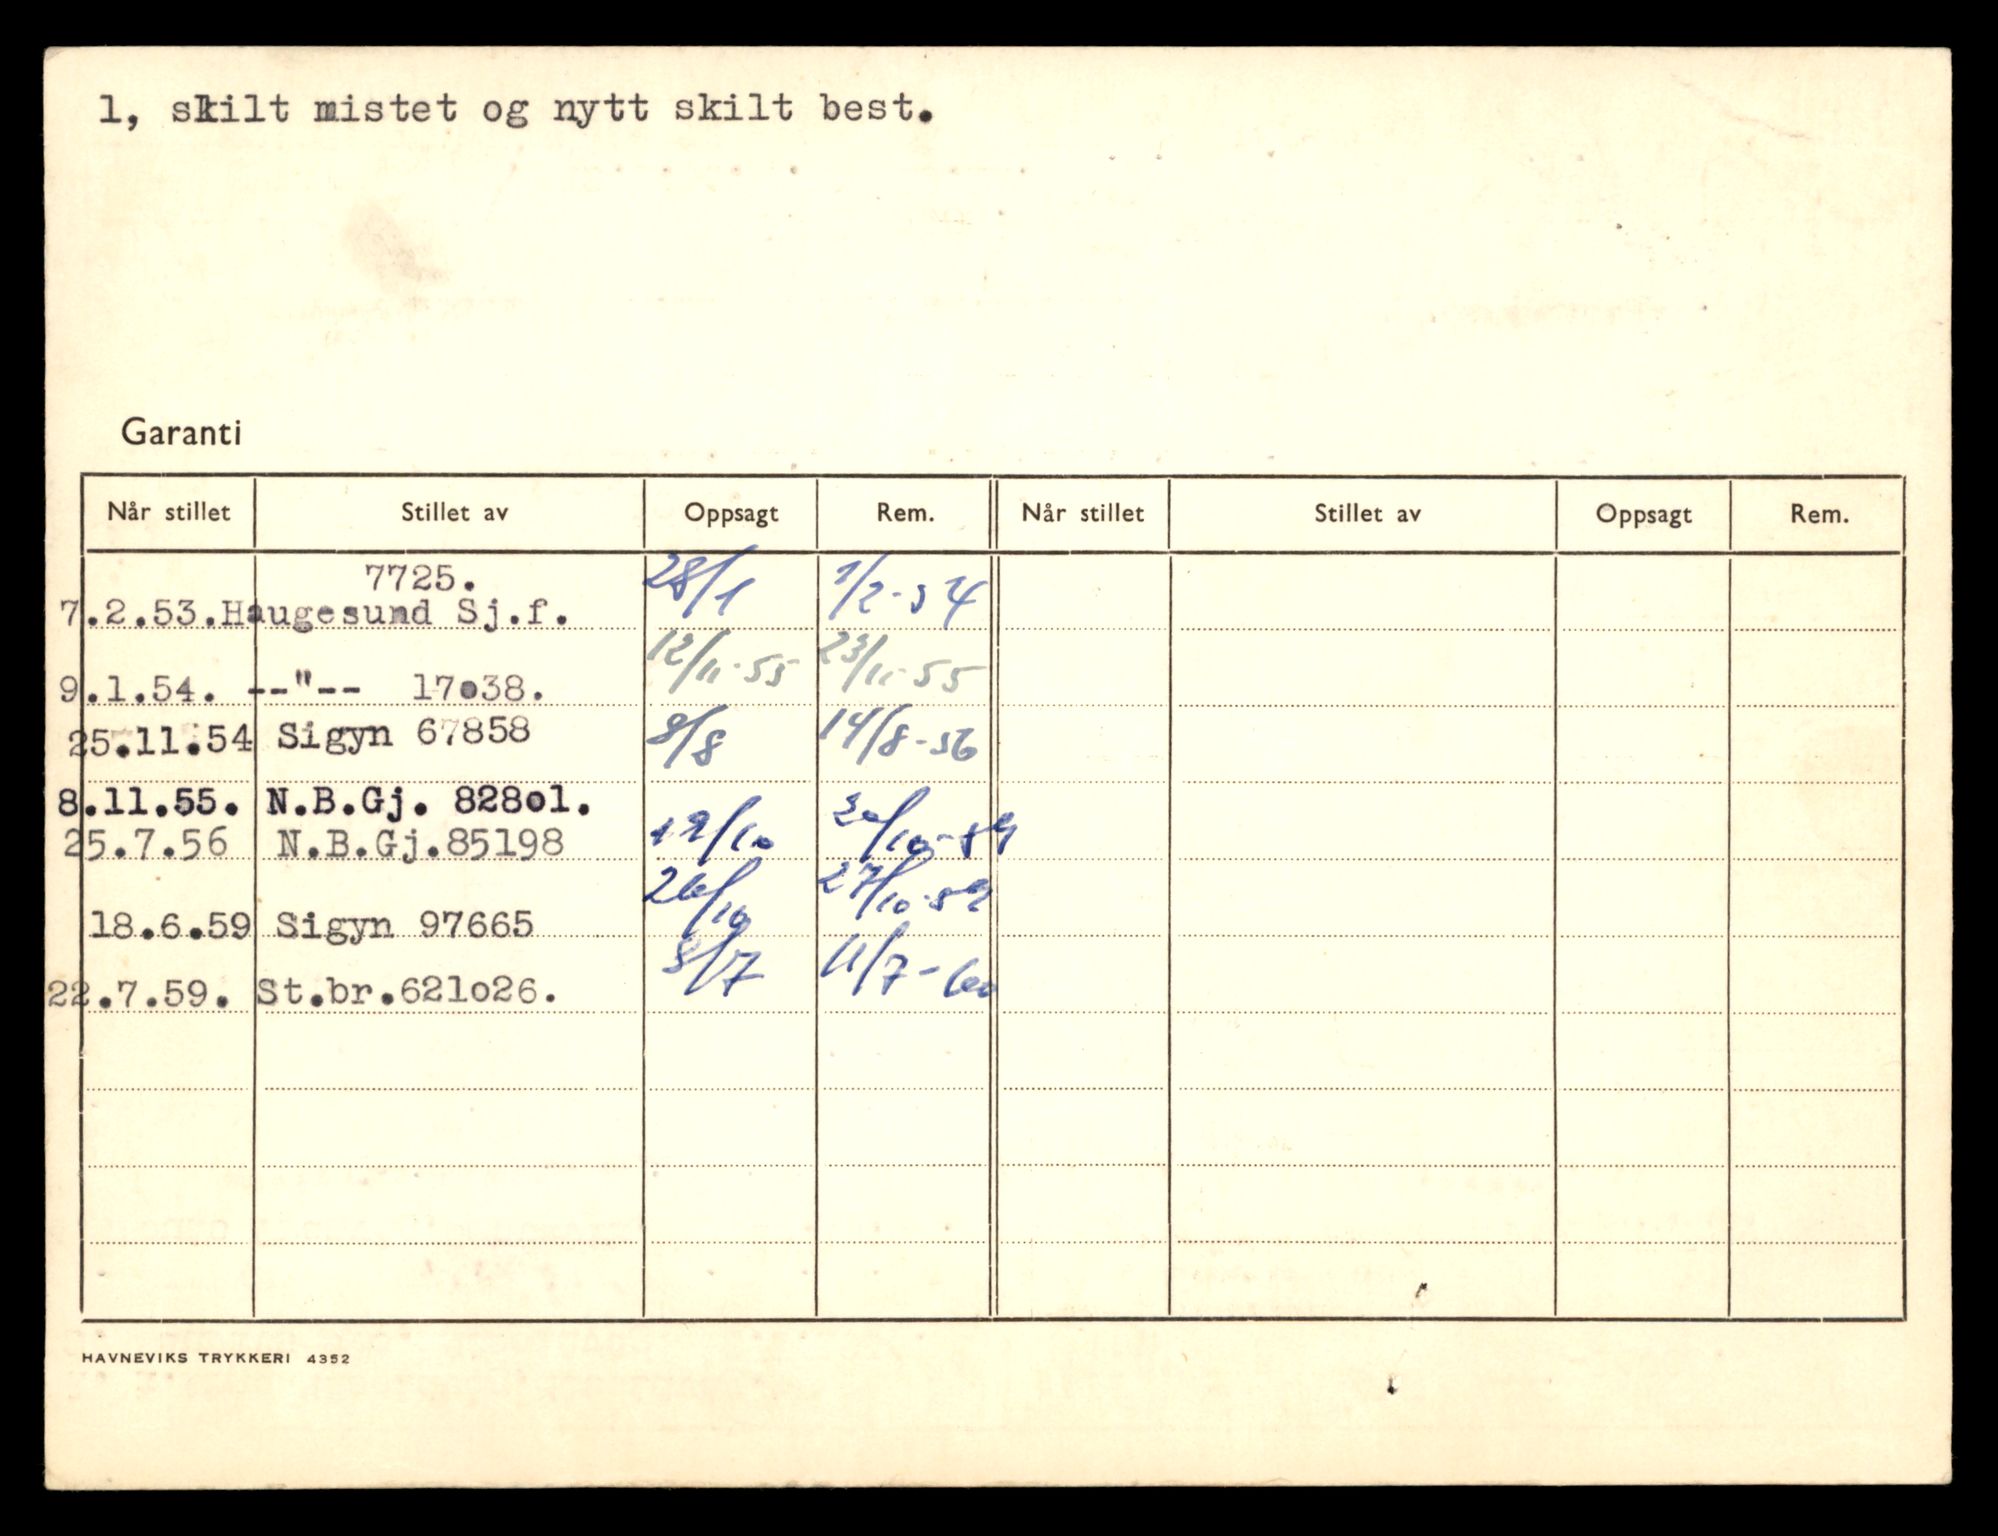 1, skilt mistet og nytt skilt best.
Garanti
Når stillet Stillet av Oppsagt Rem. Når stillet Stillet av Oppsagt Rem.
7725. 28/1 1/2-54
7.2.53. Haugesund Sj.f.
12/11-55 23/11-55
9.1.54. --"-- 17o38.
25.11.54 Sigyn 67858 8/8 14/8-56
8.11.55. N.B.Gj. 828o1.
25.7.56 N.B.Gj.85198 12/10 /10-59
26/10 27/10-59
18.6.59 Sigyn 97665
8/7 11/7-60
22.7.59. St.br.621o26.
HAVNEVIKS TRYKKERI 4352